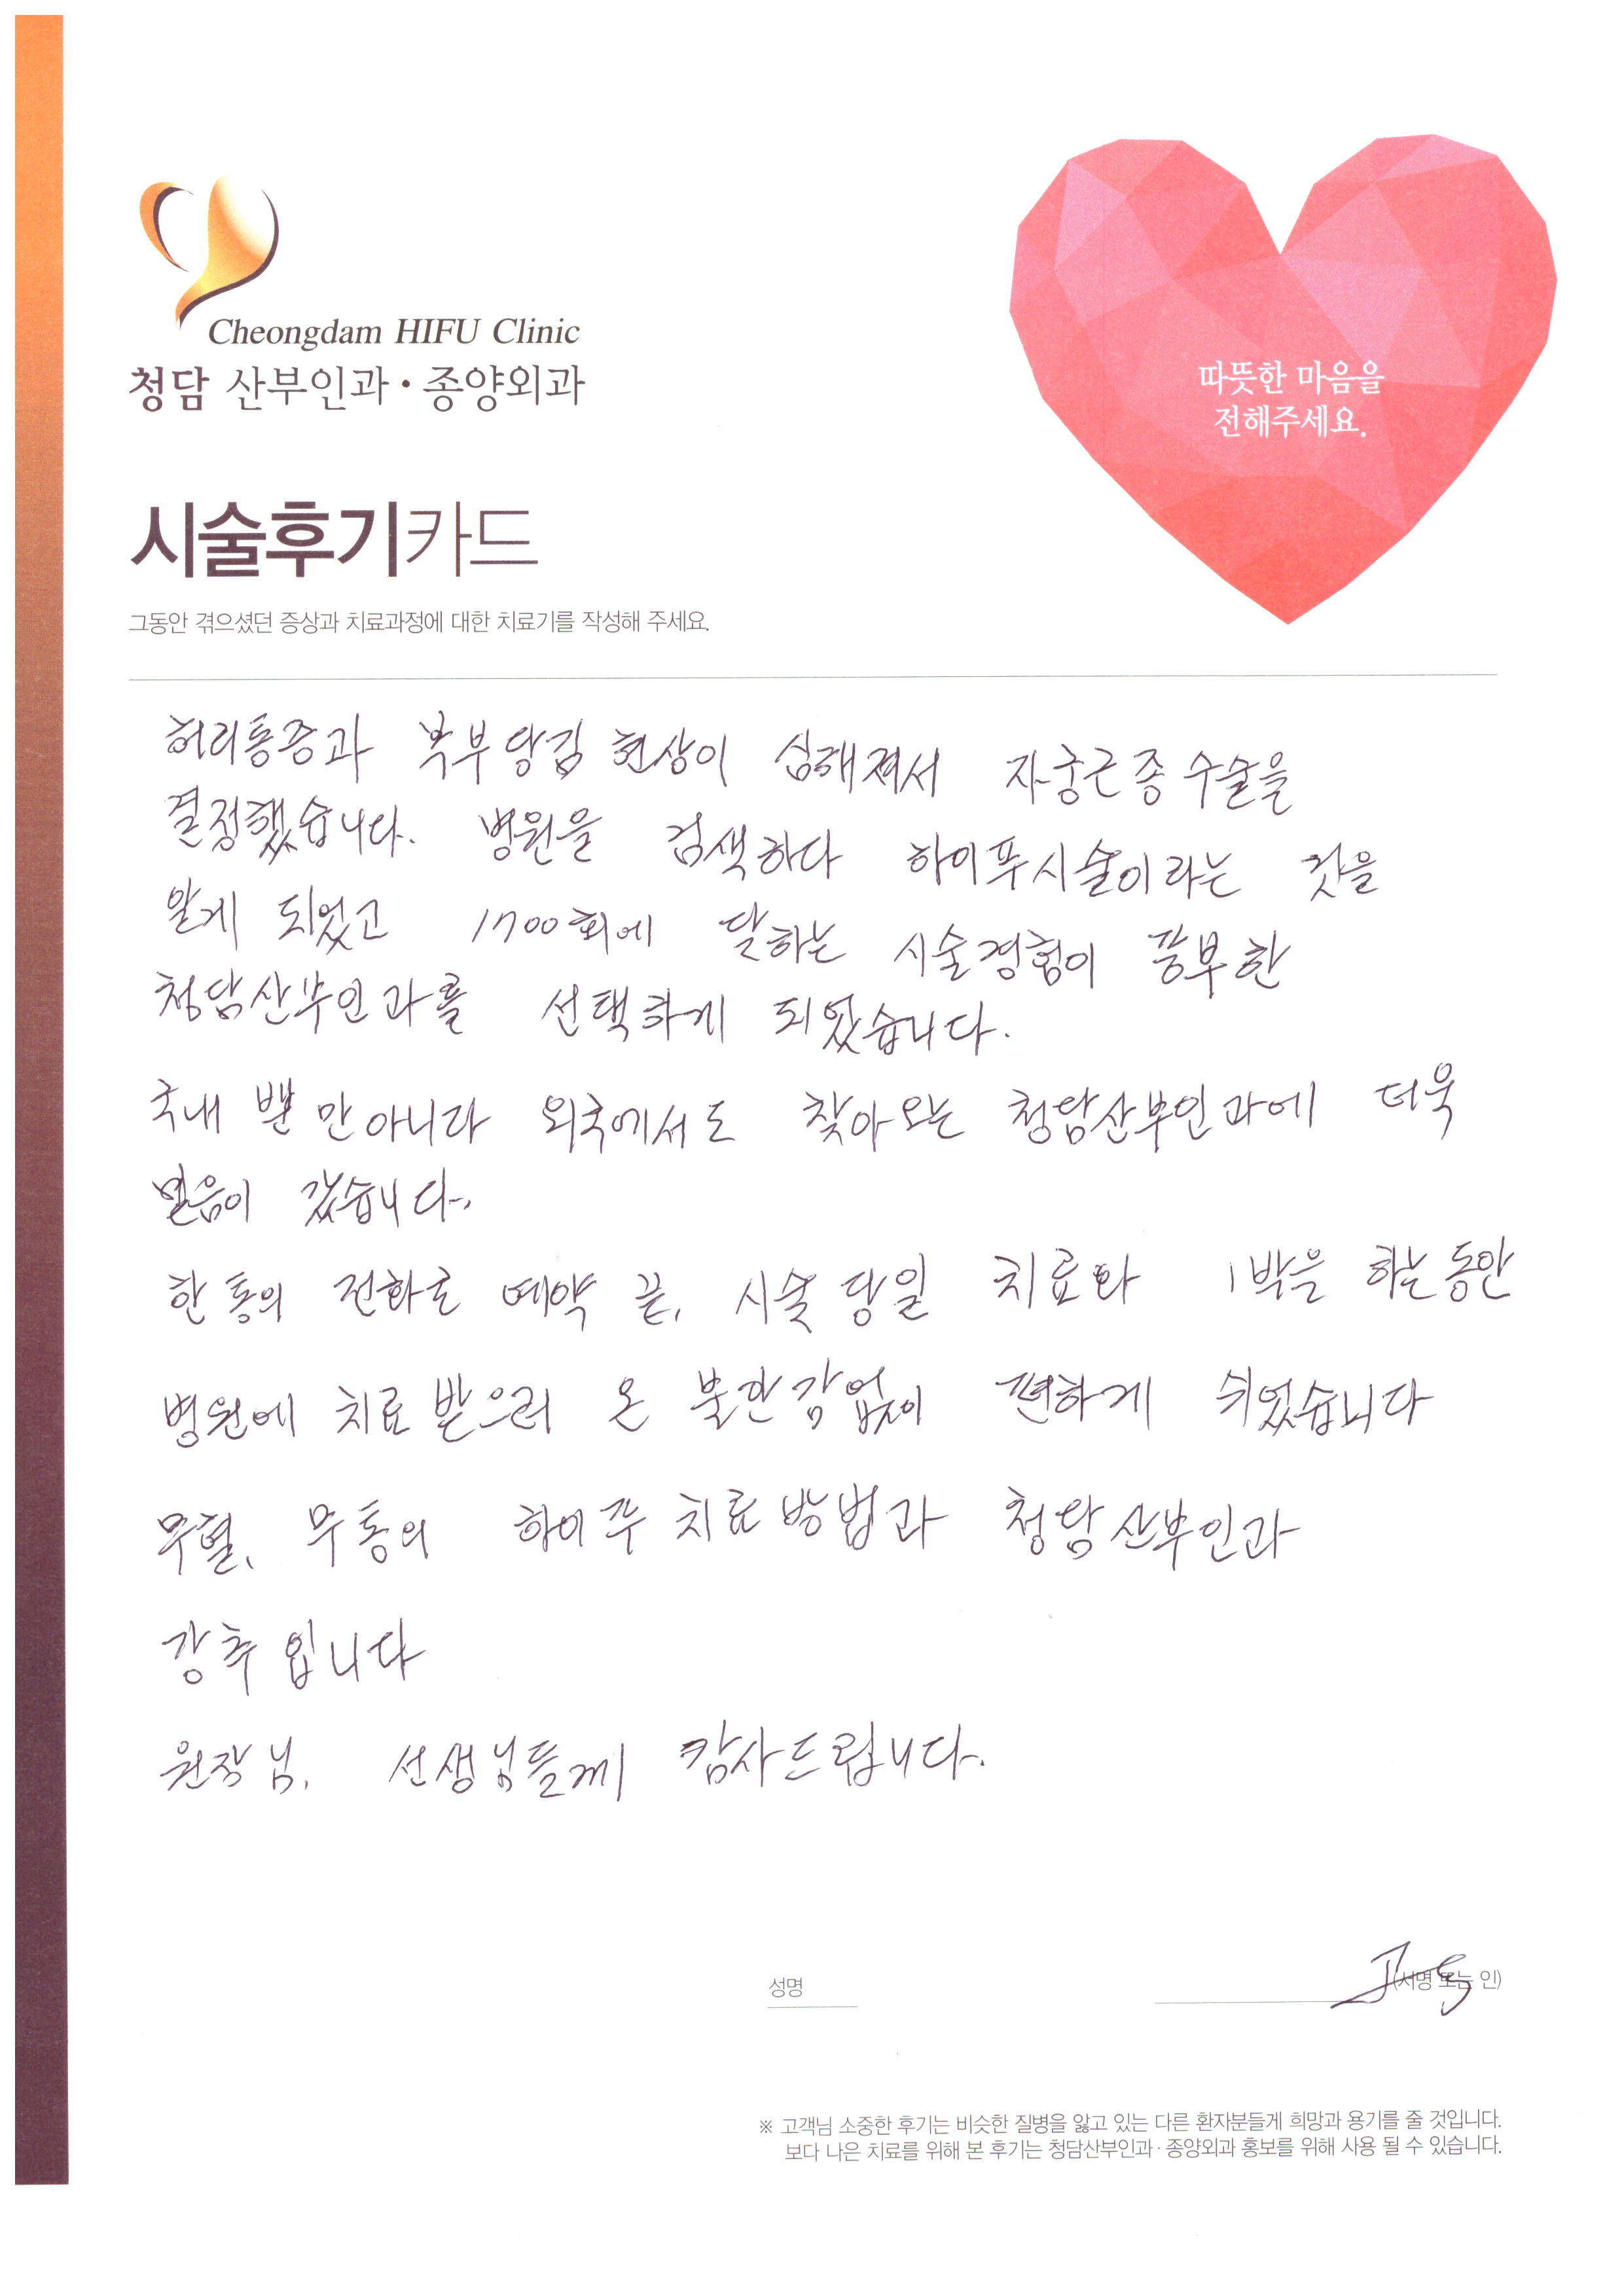 Cheongdam HIFU Clinic
청담 산부인과·종양외과
따뜻한 마음을
전해주세요.
시술후기카드
그동안 겪으셨던 증상과 치료과정에 대한 치료기를 작성해 주세요.
허리통증과 복부당김 현상이 심해져서 자궁근종수술을
결정했습니다. 병원을 검색하다 하이푸시술이라는 것을
알게 되었고 1700회에 달하는 시술경험이 풍부한
청담산부인과를 선택하게 되었습니다.
국내 뿐만아니라 외국에서도 찾아오는 청담산부인과에 더욱
믿음이 갔습니다.
한통의 전화로 예약 끝, 시술 당일 치료와 1박을 하는동안
병원에 치료받으러 온 불안감없이 편하게 쉬었습니다
무혈, 무통의 하이푸 치료방법과 청담산부인과
강추입니다
원장님, 선생님들께 감사드립니다.
성명
(서명 또는 인)
※ 고객님 소중한 후기는 비슷한 질병을 앓고 있는 다른 환자분들게 희망과 용기를 줄 것입니다.
보다 나은 치료를 위해 본 후기는 청담산부인과·종양외과 홍보를 위해 사용 될 수 있습니다.